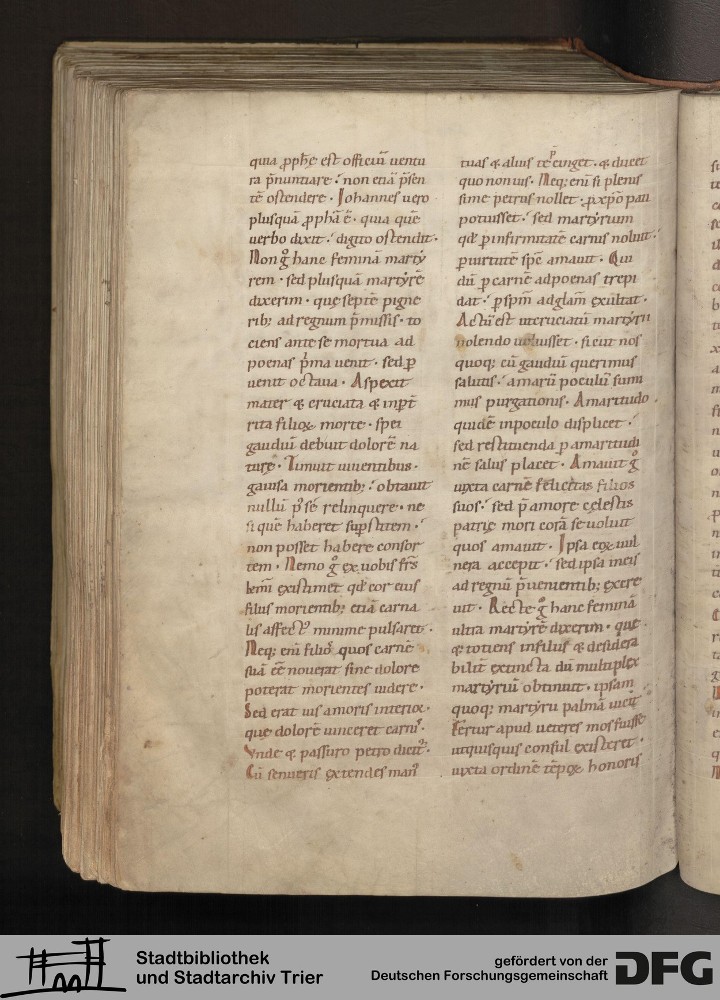 quia ꝓph̄e est officiū uentu
ra p̄nuntiare ; non etiā p̄sen
tē ostendere · Iohannes uero
plusquā ꝓphā ē · quia quē
uerbo dixit ; digito ostendit ·
Non g° hanc feminā marty
rem · sed plusquā martyrē
dixerim · que septē pigne
rib; ad regnum p̄missis · to
ciens ante se mortua ad
poenas p̄ma uenit · sed ꝑ
uenit octaua · Aspexit
mater & cruciata & inp̄t
rita filioꝝ morte · spei
gaudiū debuit dolorē na
turę · Timuit uiuentibus ·
gauisa morientib; ; obtauit
nullū p° se relinquere · ne
si quē haberet sup̄stitem ·
non posset habere consor
tem · Nemo g° ex uobis fr̄s
kr̄mi existimet qđ cor eius
filiis morientib; etiā carna
lis affect° minime pulsaret ·
Neq; eni filio° quos carnē
suā eē nouerat sine dolore
poterat morientes uidere ·
Sed erat uis amoris interior ·
que dolorē uinceret carnis ·
Vnde & passuro petro dicit° ·
Cū senueris extendes man°
tuas & alius te cinget · & ducet
quo non uis · Neq; eni si plenis
sime petrus nollet · ꝓ xp̄o pati
potuisset ; sed martyrium
qđ ꝑ infirmitatē carnis noluit ;
ꝑ uirtutē sp̄c amauit · Qui
dū ꝑ carnē ad poenas trepi
dat ; ꝑ sp̄m ad gl̄am exultat ·
Actū est ut cruciatū martyrii
nolendo uoluisset · sicut nos
quoq; cū gaudiū querimus
salutis · amarū poculū sumi
mus purgationis · Amaritudo
quidē in poculo displicet ·
sed restituenda ꝑ amaritudi
nē salus placet · Amauit g°
iuxta carnē felicitas filios
suos · sed p̄ amore cęlestis
patrię mori corā se uoluit
quos amauit · Ipsa eoꝝ uul
nera accepit ; sed ipsa in eis
ad regnū p̄uenientib; excre
uit · Recte g° hanc feminā
ultra martyrē dixerim · que
& totiens in filiis & desidera
bilit̄ extincta dū multiplex
martyriū obtinuit · ipsam
quoq; martyrii palmā uicit
Fertur apud ueteres mos fuisse
ut quisquis consul existeret ·
iuxta ordinē tēpoꝝ honoris
Stadtbibliothek
und Stadtarchiv Trier
gefördert von der
Deutschen Forschungsgemeinschaft
DFG